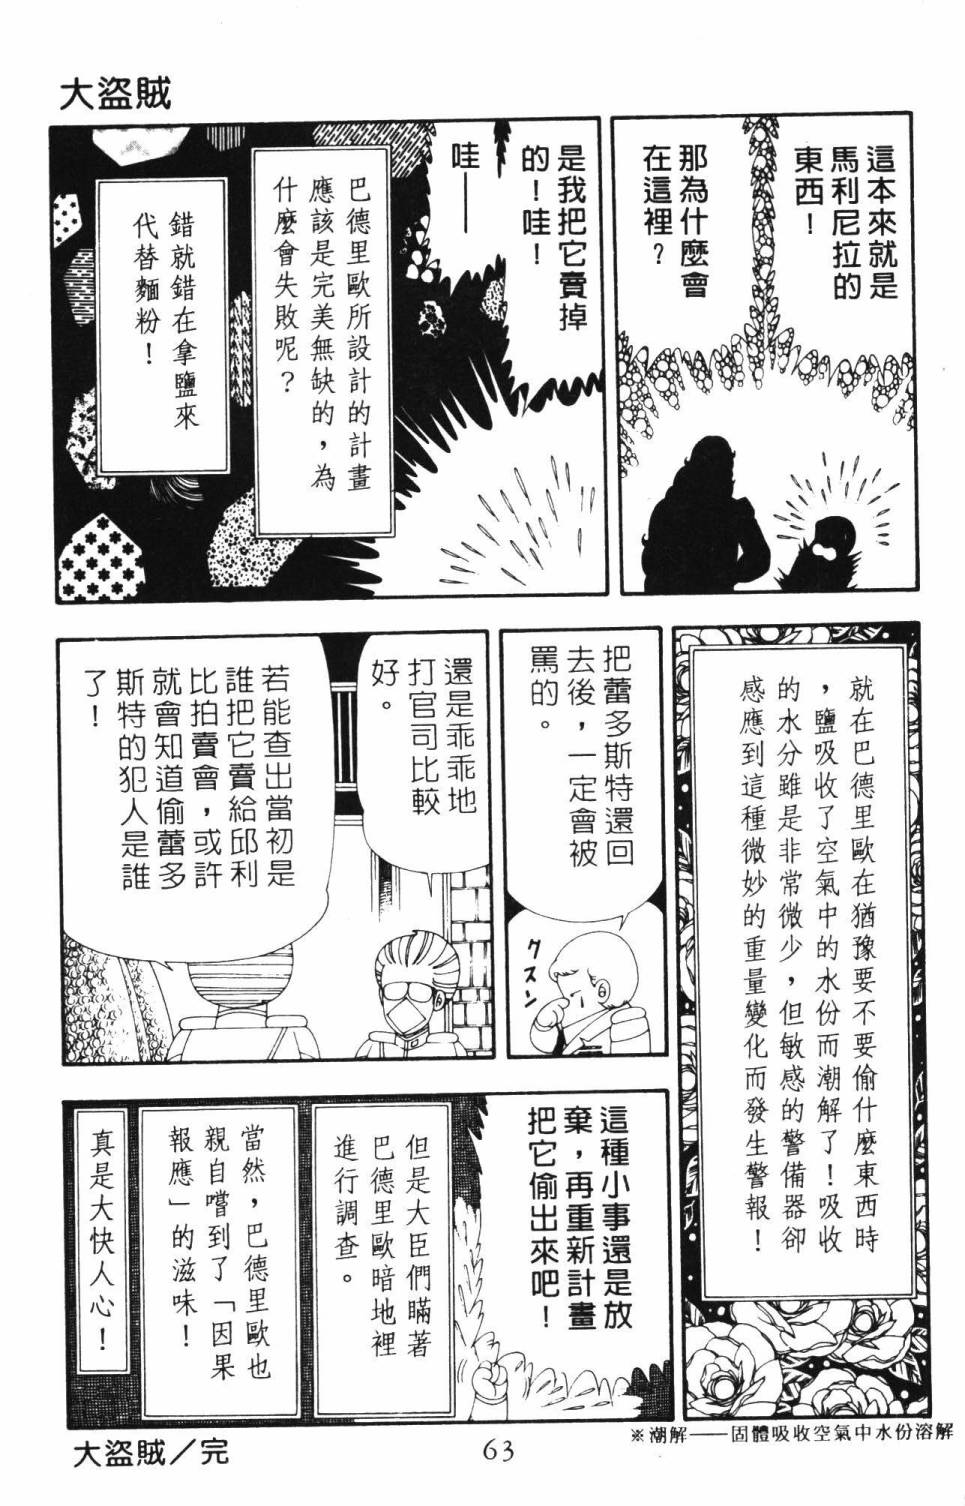 大盜賊
這本來就是
馬利尼拉的
東西！
那為什麼會
在這裡？
是我把它賣掉
的！哇！
哇——
巴德里歐所設計的計畫
應該是完美無缺的，為
什麼會失敗呢？
錯就錯在拿鹽來
代替麵粉！
就在巴德里歐在猶豫要不要偷什麼東西時
，鹽吸收了空氣中的水份而潮解了！吸收
的水分雖是非常微少，但敏感的警備器卻
感應到這種微妙的重量變化而發生警報！
把蕾多斯特還回
去後，一定會被
罵的。
クスン
還是乖乖地
打官司比較
好。
若能查出當初是
誰把它賣給邱利
比拍賣會，或許
就會知道偷蕾多
斯特的犯人是誰
了！
這種小事還是放
棄，再重新計畫
把它偷出來吧！
但是大臣們瞞著
巴德里歐暗地裡
進行調查。
當然，巴德里歐也
親自嚐到了「因果
報應」的滋味！
真是大快人心！
※潮解——固體吸收空氣中水份溶解
大盜賊／完
63